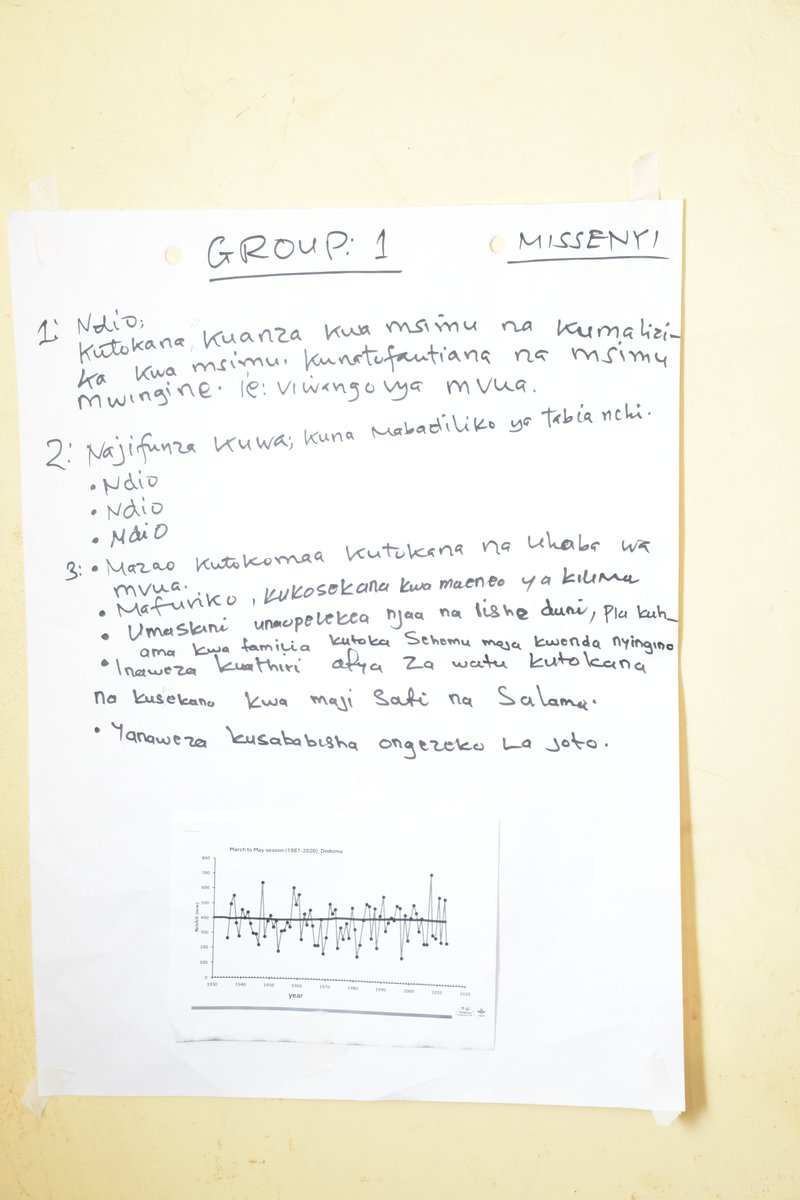 GROUP: 1
MISSENYI
1: Ndio;
Kutokana, Kuanza kwa msimu na kumalizi-
ka kwa msimu. Kunatofautiana na msimu
mwingine. Ie: viwango vya mvua.
2: Najifunza kuwa; kuna Mabadiliko ya tabia nchi.
• Ndio
• Ndio
• Ndio
3: • Mazao kutokomaa kutokana na Uhaba wa
mvua.
• Mafuriko, kukosekana kwa maeneo ya kilimo
• Umaskini unaopelekea njaa na lishe duni, Pia kuh-
ama kwa familia kutoka Sehemu moja kwenda nyingine
• Inaweza kuathiri afya za watu kutokana
na kusekana kwa maji Safi na Salama.
• Yanaweza kusababisha ongezeko La joto.
March to May season (1981-2020) Dodoma
Rainfall (mm)
800
700
600
500
400
300
200
100
0
1930 1940 1950 1960 1970 1980 1990 2000 2010 2020
year